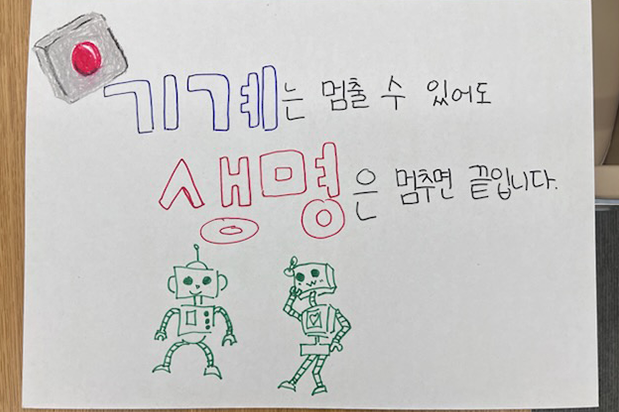 기계는 멈출 수 있어도
생명은 멈추면 끝입니다.